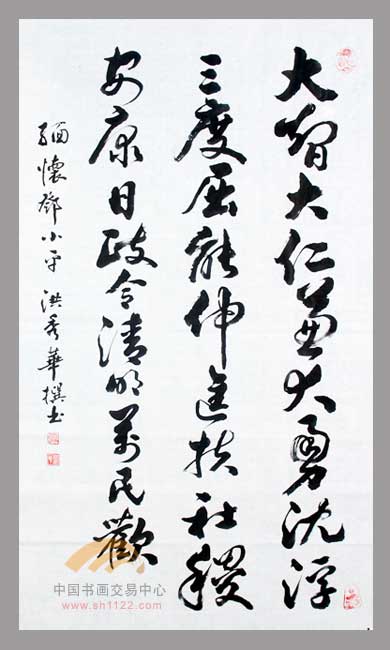 大智大仁兼大勇沈浮
三度屈能伸匡扶社稷
安康日政令清明萬民歡
緬懷鄧小平 洪秀華撰书
中国书画交易中心
www.sh1122.com